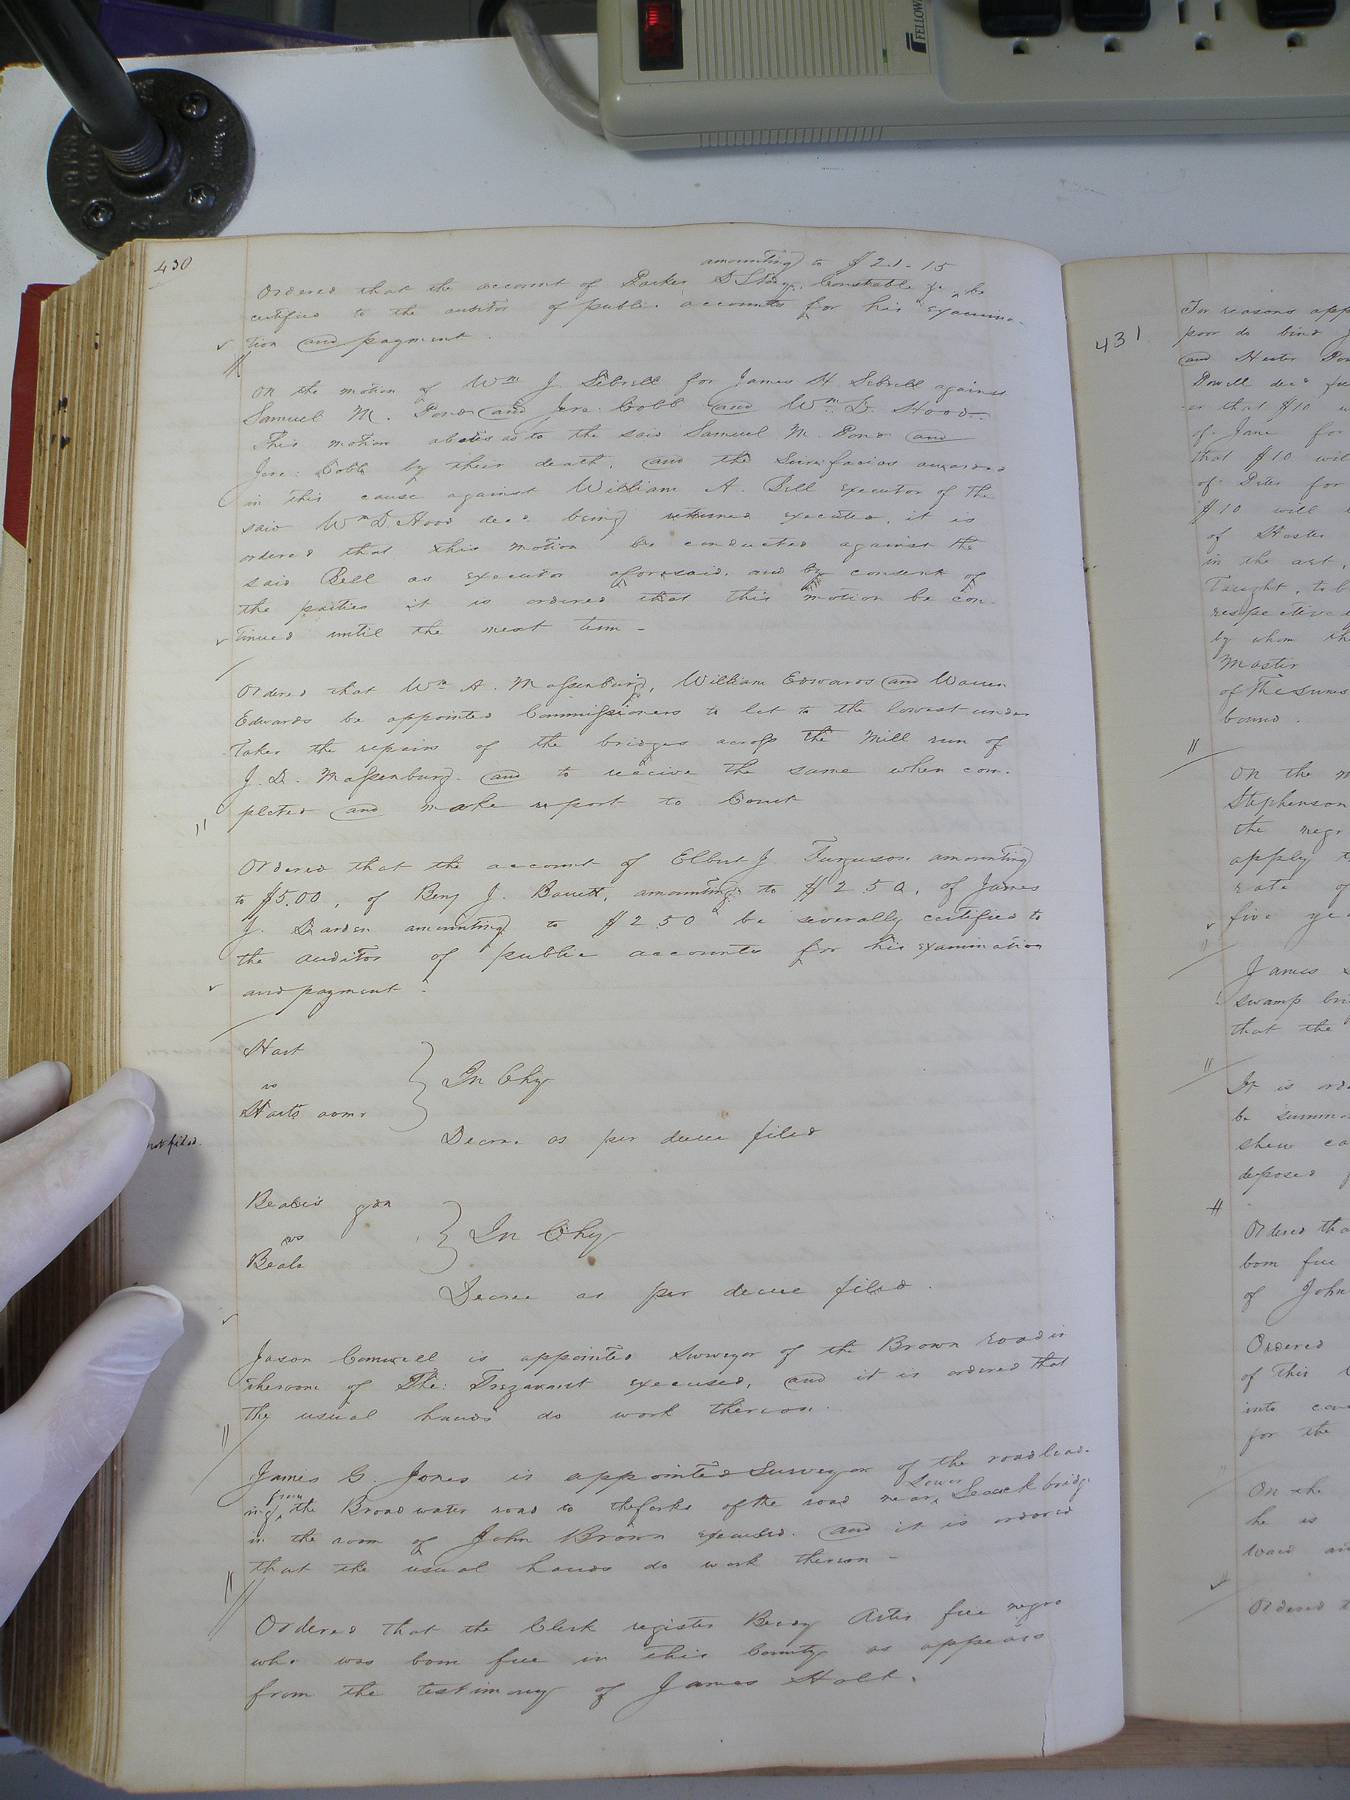 430
amounting to $21.15
Ordered that the account of Parker D Story, Constable &c, be
certified to the auditor of public accounts for his examina-
tion and payment.
On the motion of Wm J Sebrell for James H Sebrell against
Samuel M. Pond and Jere: Cobb and Wm D. Hood.
This motion abates as to the said Samuel M. Pond and
Jere: Cobb by their death, and the Scire facias awarded
in this cause against William A. Bell executor of the
said Wm D Hood decd. being returned executed, it is
ordered that this motion be conducted against the
said Bell as executor aforesaid. and by consent of
the parties it is ordered that this motion be con-
tinued until the next term -
Ordered that Wm A. Massenburg, William Edwards and Warren
Edwards be appointed Commissioners to let to the lowest under
taker the repairs of the bridges across the Mill run of
J. D. Massenburg. and to receive the same when com-
pleted and make report to Court
Ordered that the account of Elbert J. Furguson amounting
to $5.00, of Benj J. Barrett, amounting to $2.50, of James
J. Darden amounting to $2.50 be severally certified to
the auditor of public accounts for his examination
and payment.
Hart
vs
Harts admr
In Chy
Decree as per decree filed
not filed
Beale's gdn
vs
Beale
In Chy
Decree as per decree filed.
Jason Comwell is appointed Surveyor of the Brown road in
the room of Th: Trezavant excused, and it is ordered that
the usual hands do work thereon.
James G. Jones is appointed Surveyor of the road lead-
ing from the Broadwater road to the forks of the road near Lower Seacock bridge
in the room of John Brown excused. and it is ordered
that the usual hands do work thereon -
Ordered that the Clerk register Becky Artis free negro
who was born free in this County as appears
from the testimony of James Holt.
431
For reasons app
poor do bind J
and Hester Pow
Powell decd fre
is that $10 w
of Jane for
that $10 wil
of Dilce for
$10 will
of Hester
in the art,
Taught, to b
respective
by whom th
Master
of the sums
bound.
On the m
Stephenson
the negr
apply t
rate of
five yea
James
swamp bri
that the
It is ord
be summo
shew ca
deposed
Ordered tha
born free
of John
Ordered
of this C
into
for the
On the
he is
ward an
Ordered t
FELLOWE